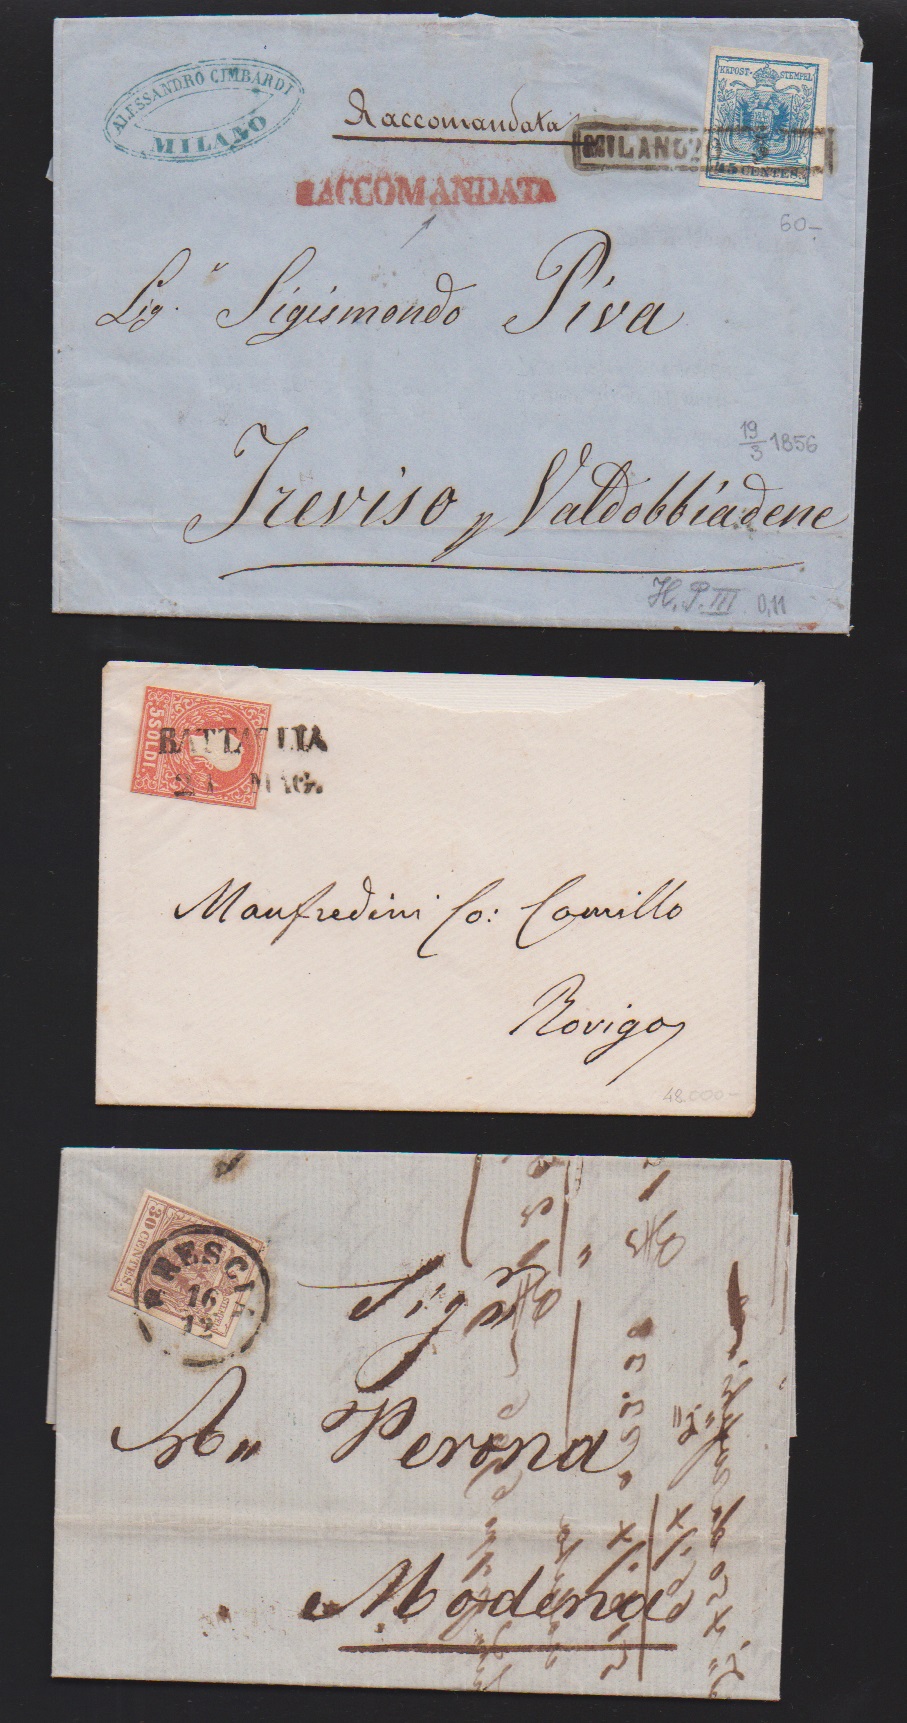 ALESSANDRO CIMBARDI
MILANO
Raccomandata
RACCOMANDATA
KKPOST-STEMPEL
MILANO
45 CENTES.
60-
Sig.r Sigismondo Piva
19/3 1856
Treviso p Valdobbiadene
H.P.III 0,11
5 SOLDI
BATTAGLIA
MAG.
Manfredini Co: Camillo
Rovigo
48.000-
30 CENTES.
BRESCIA
16
12
Sigr
An Perona
Modena